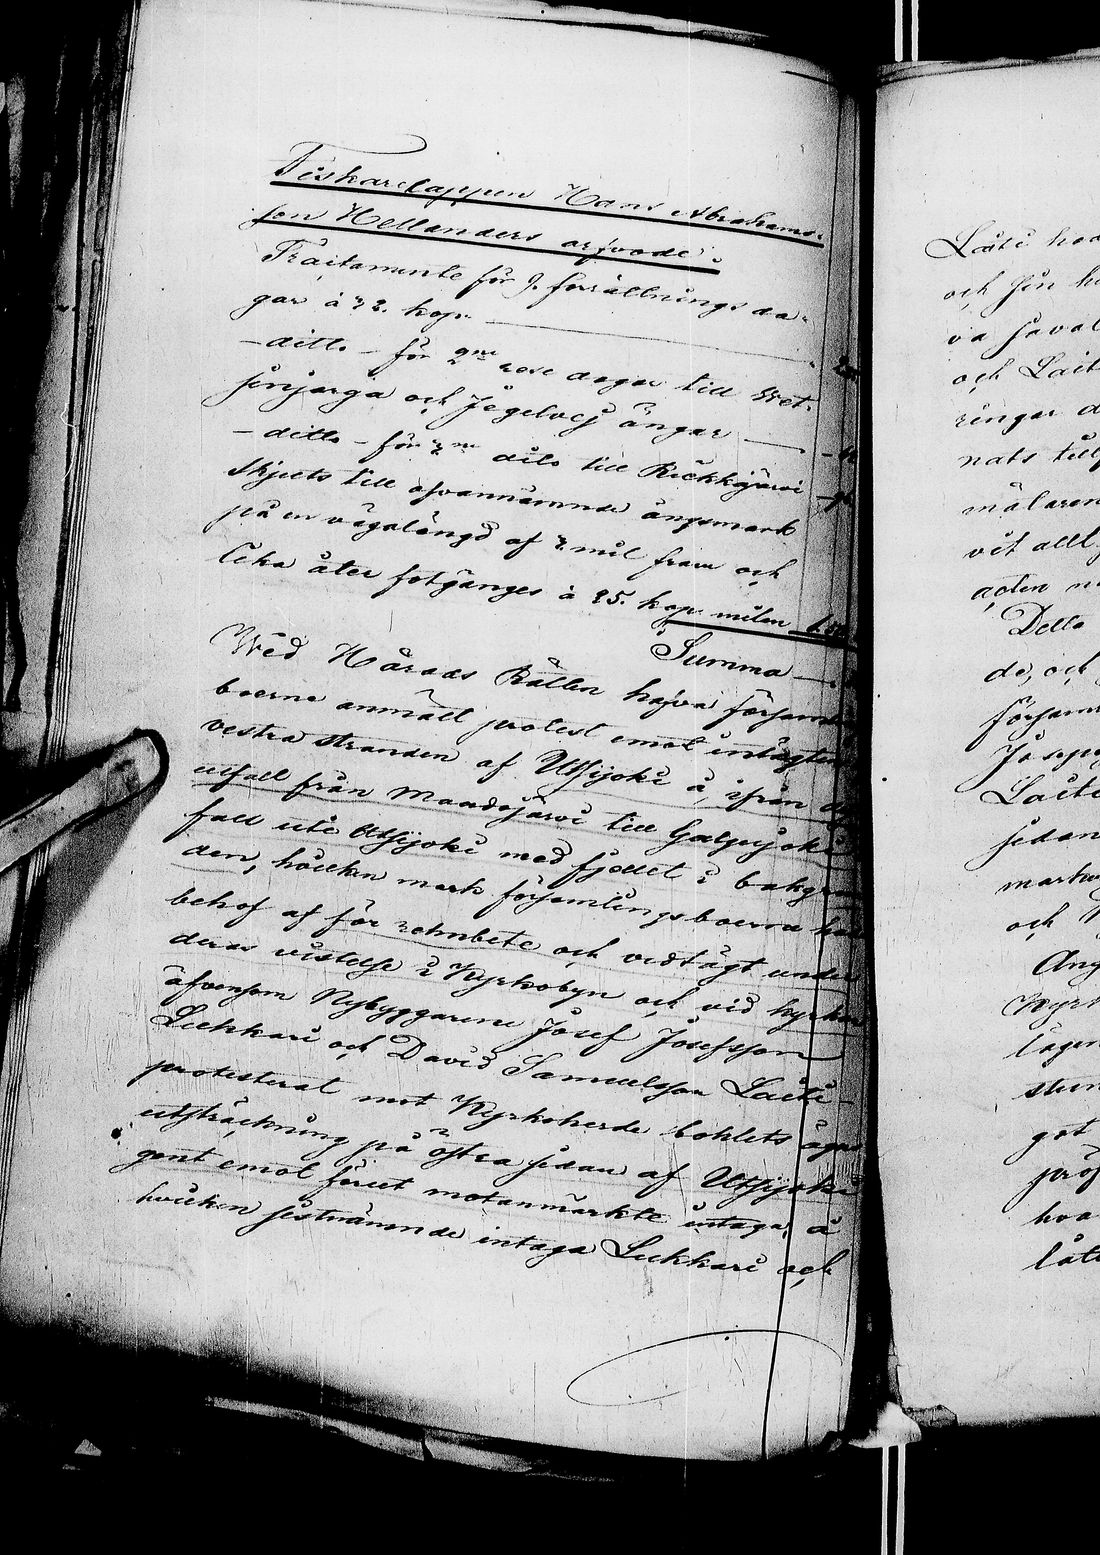 Fiskarelappen Hans Abrahams-
son Hellanders arfvode.
Traitamente för 9. förrättnings da-
gar à 32. kop.
- ditto - för 2ne rese dagar till Wet-
sinjarga och Jegelvej ängar
- ditto - för 3ne dito till Riekkijärvi
Skjuts till ofvannämnde ängsmark
på en vägalängd af 3 mil fram och
lika åter fotgänges à 25. kop. milen
Summa
Wed Härads Rätten hafva församl
boerne anmält protest emot intägten
vestra stranden af Utsjoki å, ifrån
utfall från Mandojärvi till Galgujoki
fall uti Utsjoki med fjellet i bakgrun
den, hvilken mark församlingsboerna ha
behof af för renbete och vedtägt under
deras vistelse i Kyrkobyn och vid kyrkan
äfvensom Nybyggarene Josef Josefsson
Lukkari och David Samuelsson Laiti
protesterat mot Kyrkoherde bohlets ägo
utsträckning på östra sidan af Utsjoki
gent emot förut motanmärkte intaga, å
hvilken sistnämnde intaga Lukkari och
Laiti
och sin
va
och Lait
ringar
nats till
målaren
vit allt
Detta
de, och
Försam
Josep
Laiti
sidan
marken
och
Ang
Kyrk
lagen
stun
got
pröf
hva
låt